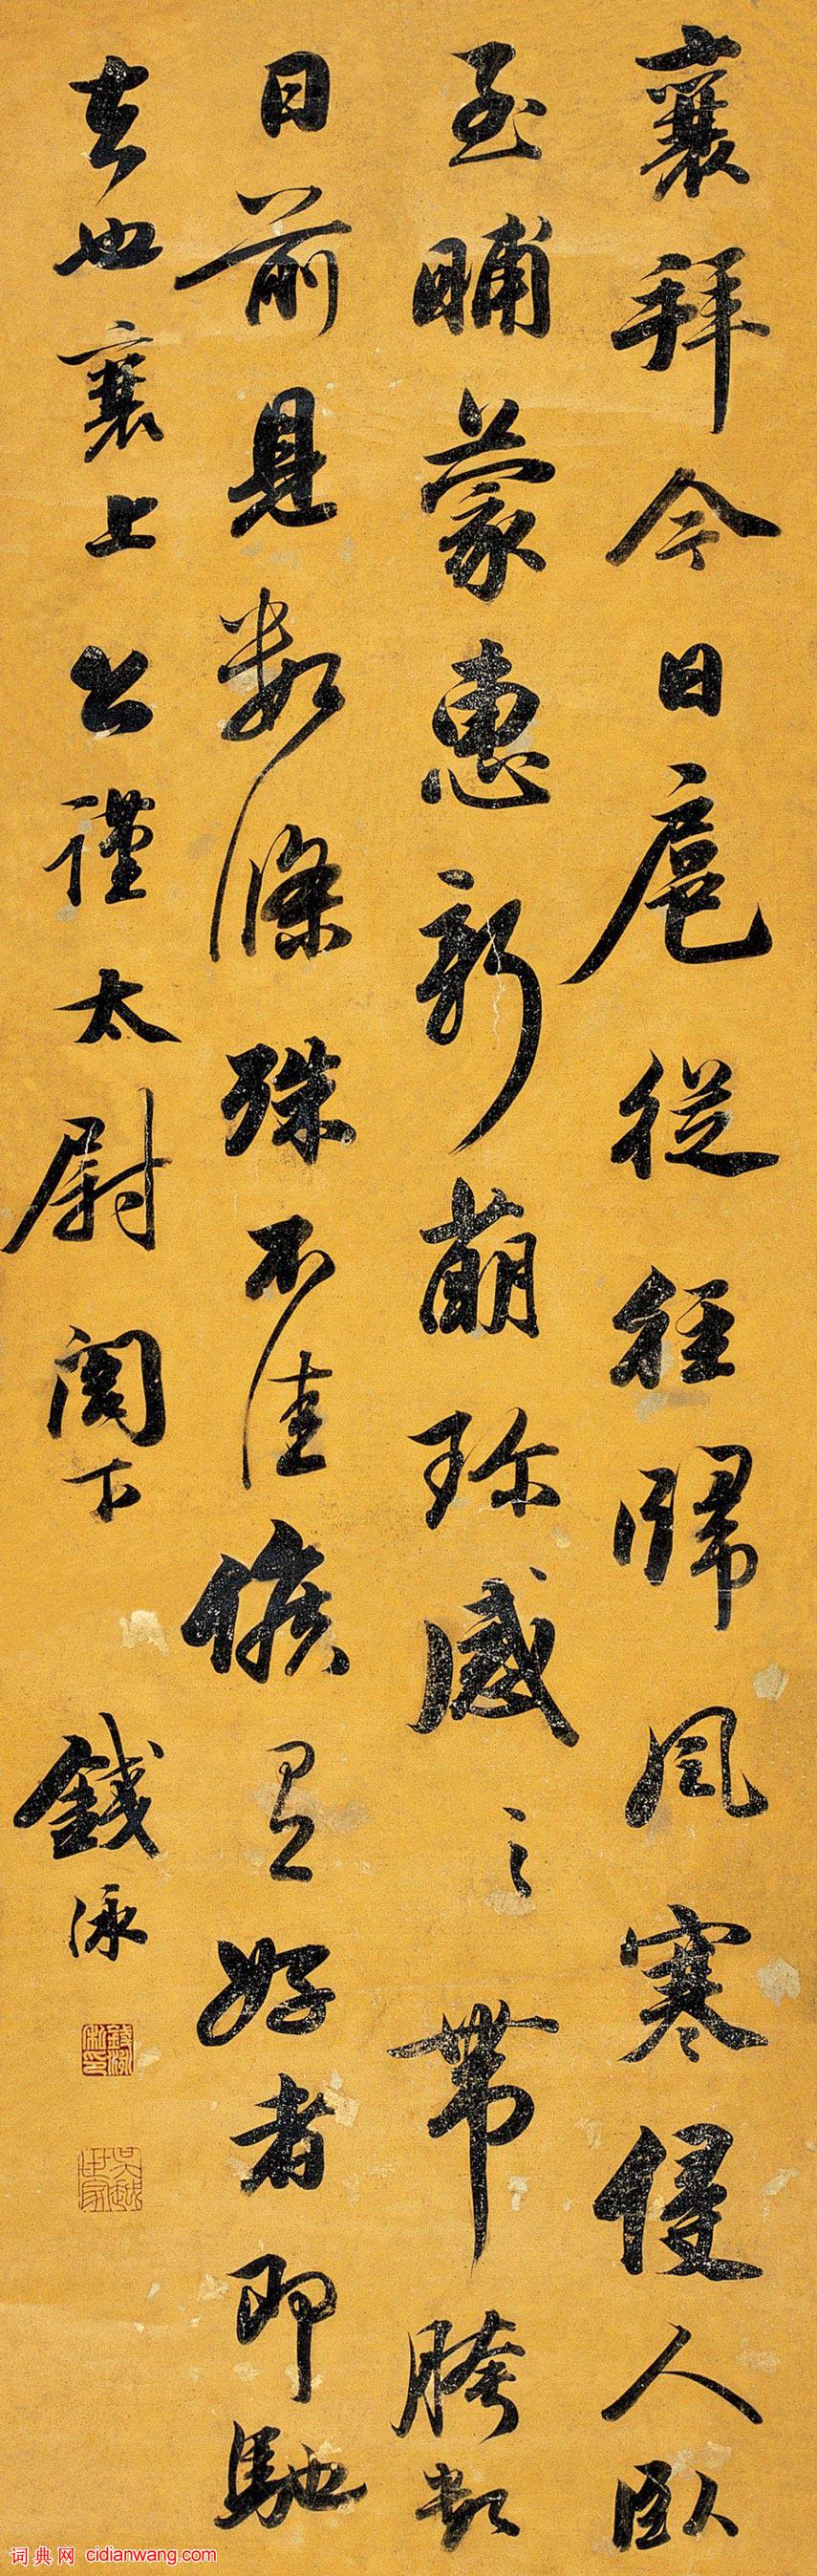 襄拜今日扈從徑歸風寒侵人臥
至晡蒙惠新萌珍感〻帶胯數
日前見數條殊不佳候有好者即馳
去也襄上公謹太尉閣下 錢泳
吳越世家
词典网 cidianwang.com